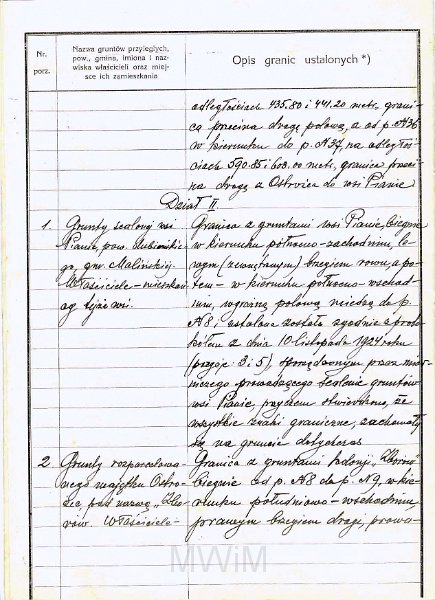 Nr.
porz.
Nazwa gruntów przyległych,
pow., gmina, imiona i naz-
wiska właścicieli oraz miej-
sce ich zamieszkania
Opis granic ustalonych *)
odległościach 435.80 i 441.20 metr. grani-
ca przecina drogę polową, a od p. N36
w kierunku do p. N37, na odległoś-
ciach 590.85 i 608.00 metr, granica przeci-
na drogę z Ostrowca do wsi Pianie
Dział II.
1. Grunty scalone wsi
Pianie, pow. Dubieńskie-
go, gm. Malińskiej
Właściciele - mieszkań-
cy tejże wsi.
Granica z gruntami wsi Pianie, biegnie
w kierunku północno-zachodnim, le-
wym (zewnętrznym) brzegiem rowu, a po-
tem - w kierunku północno-wschod-
nim, wyoraną polową miedzą do p.
N8 i ustalona została zgodnie z proto-
kółem z dnia 10 listopada 1927 roku
(pozycje: 3 i 5), sporządzonym przez mier-
niczego prowadzącego scalenie gruntów
wsi Pianie, przyczem stwierdzono, że
wszystkie znaki graniczne, zachowały
się na gruncie dotychczas
2 Grunty rozparcelowa-
nego majątku Ostro-
pod nazwą
Właściciele-
Granica z gruntami kolonji
biegnie od p. N8 do p. N9, w kie-
runku południowo-wschodnim,
prawym brzegiem drogi, prowa-
MWiM